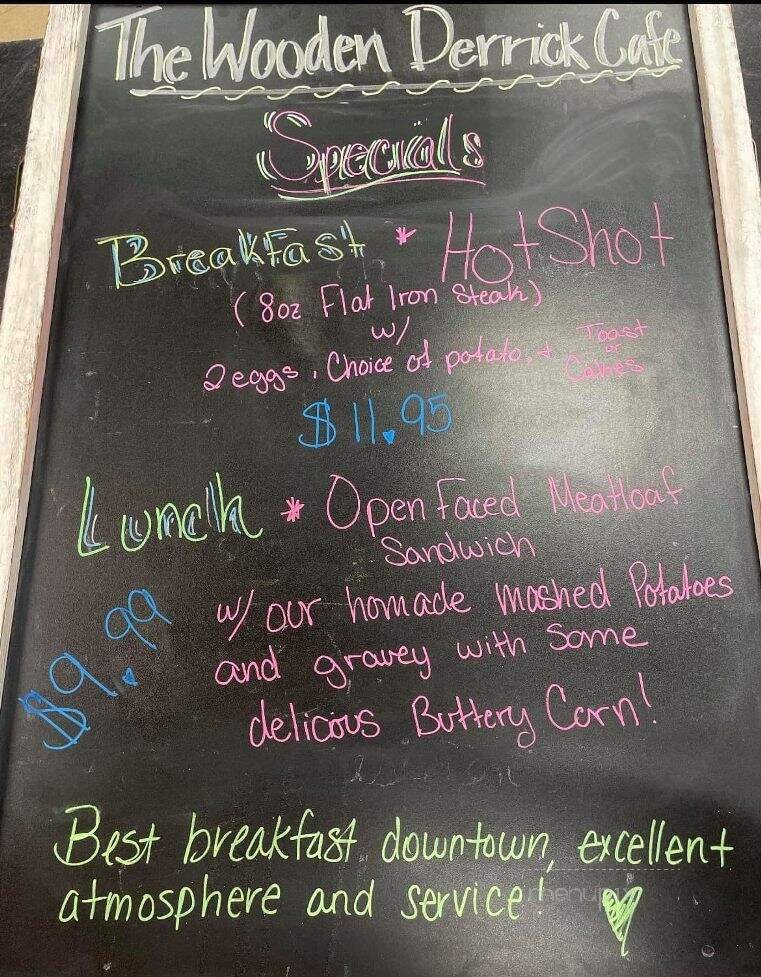 The Wooden Derrick Cafe
Specials
Breakfast * HotShot
(8oz Flat Iron Steak)
w/
2 eggs, Choice of potato, + Toast
or
Cakes
$11.95
Lunch * Open Faced Meatloaf
Sandwich
$9.99
w/ our homade mashed Potatoes
and gravey with Some
delicious Buttery Corn!
Best breakfast downtown, excellent
atmosphere and service!
menupix